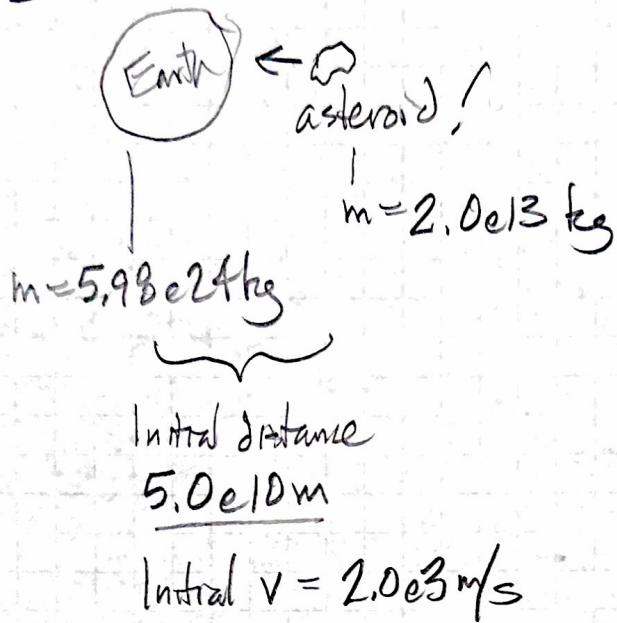 Earth
asteroid!
m = 2.0e13 kg
m = 5.98e24 kg
Initial distance
5.0e10 m
Initial v = 2.0e3 m/s